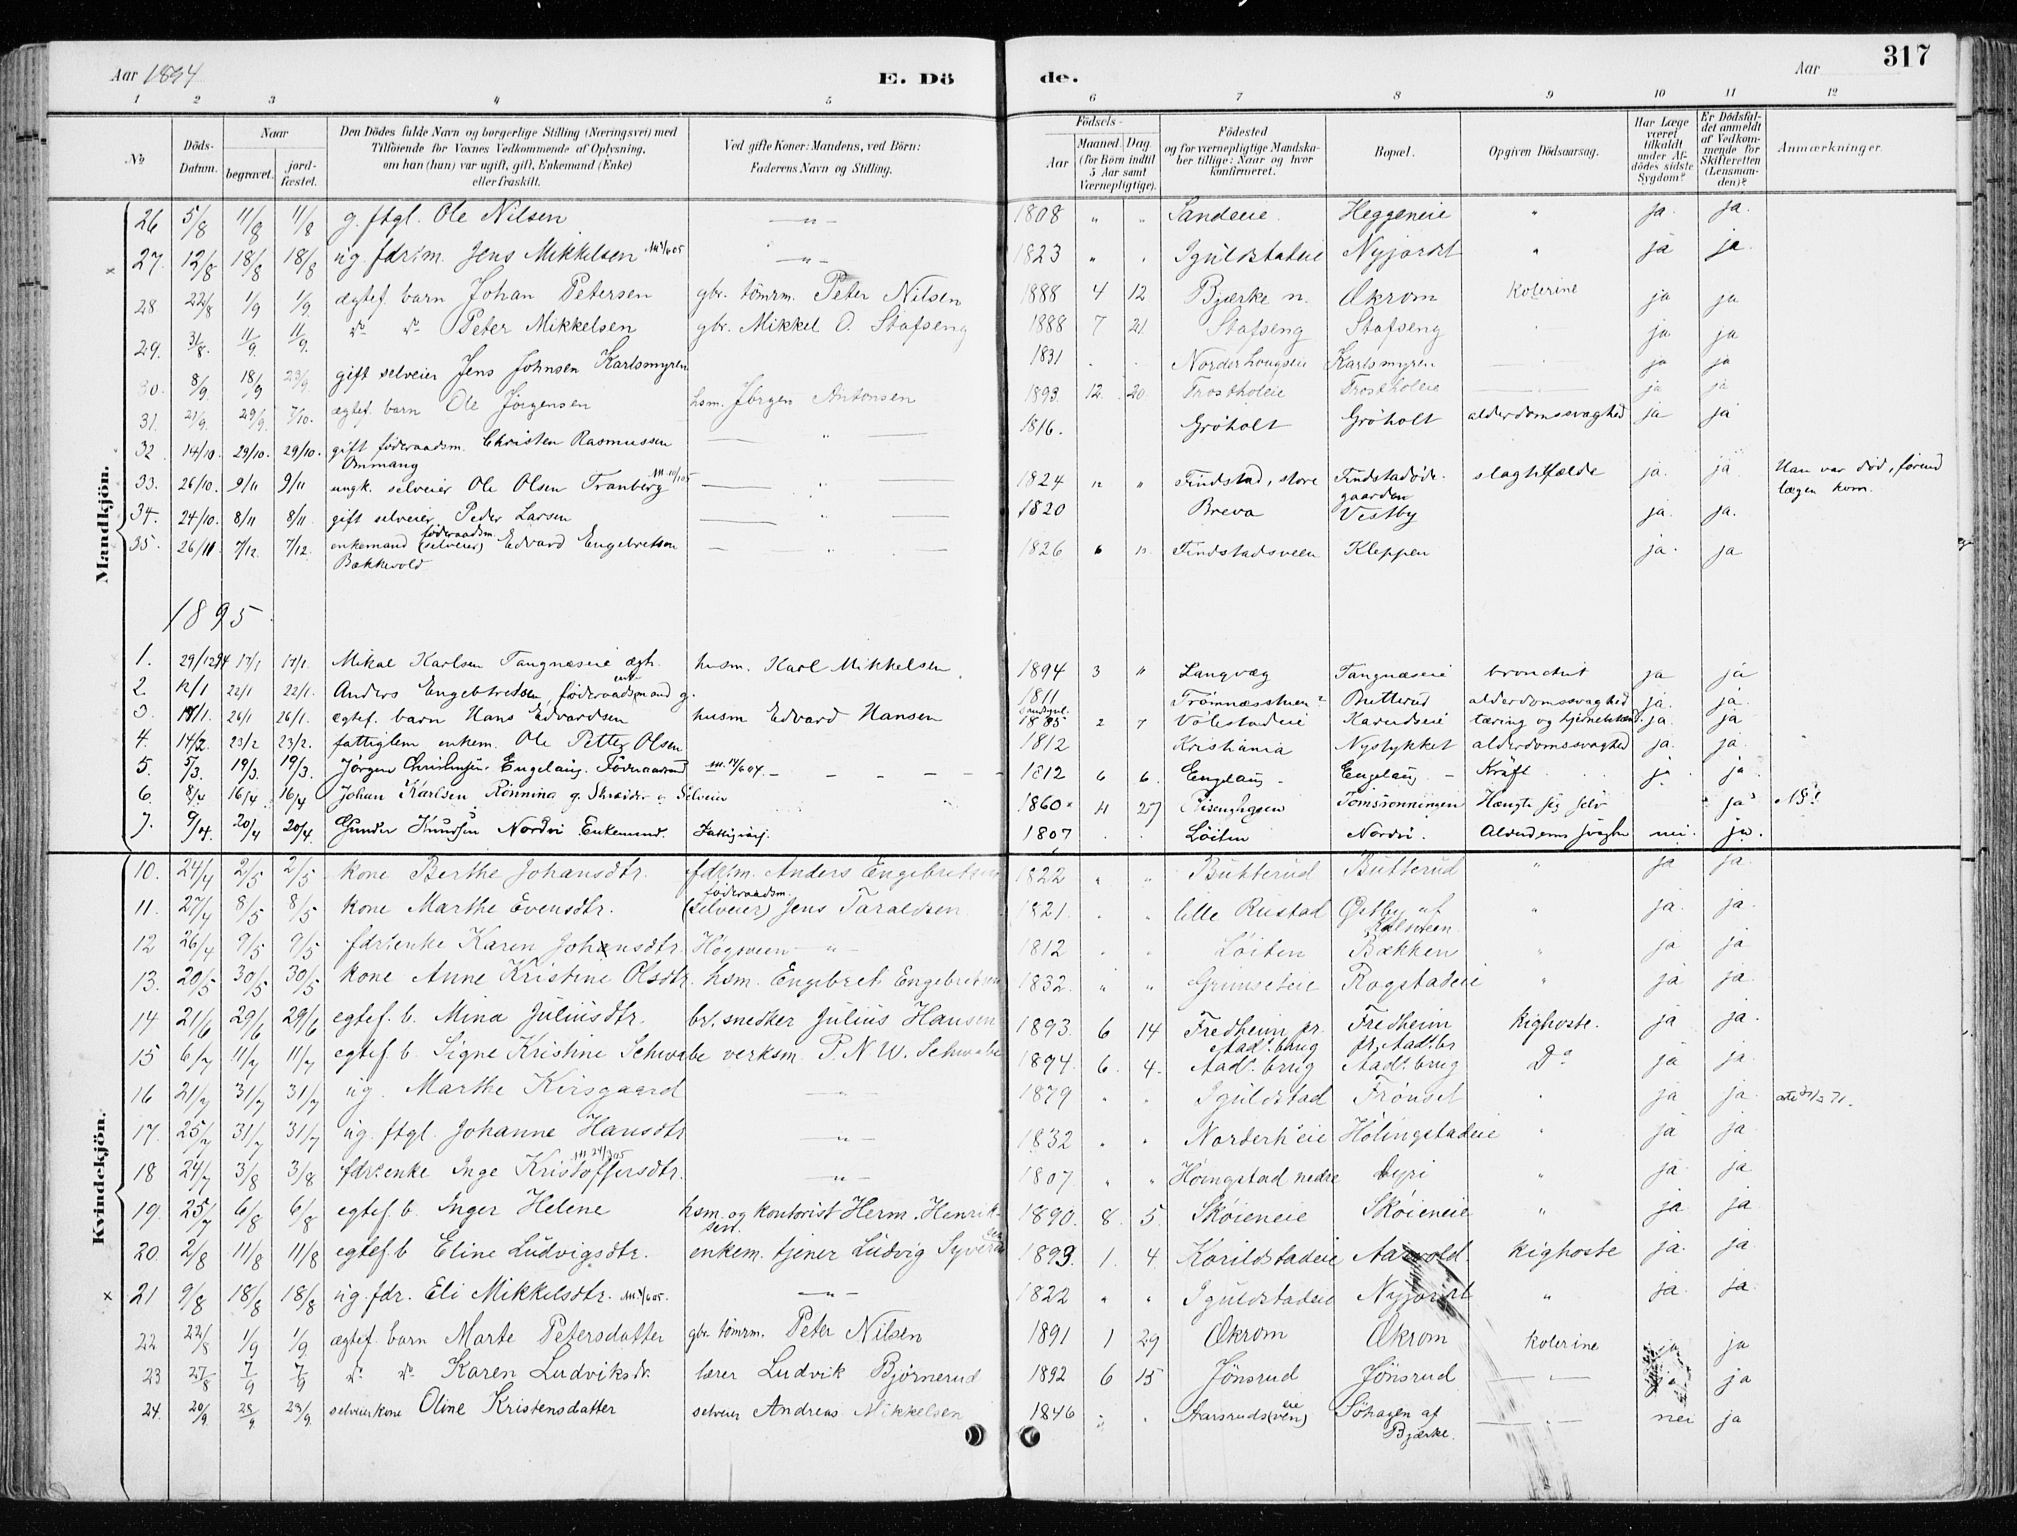 Aar 1894
E. Dö
de.
Aar
317
1 2 3 4 5 6 7 8 9 10 11 12
No
Döds-Datum.
Naar
begravet.
jordfæstet.
Den Dödes fulde Navn og borgerlige Stilling (Næringsvei) med Tilföiende for Voxnes Vedkommende af Oplysning, om han (hun) var ugift, gift, Enkemand (Enke) eller fraskilt.
Ved gifte Koner: Mandens, ved Börn: Faderens Navn og Stilling.
Födsels-
Aar
Maaned. Dag
(for Börn indtil 5 Aar samt Værnepligtige).
Födested og for værnepligtige Mandskaber tillige: Naar og hvor konfirmeret.
Bopæl.
Opgiven Dödsaarsag.
Har Læge været tilkaldt under Afdödes sidste Sygdom?
Er Dödsfaldet anmeldt af Vedkommende for Skifteretten (Lensmanden)?
Anmærkninger.
Mandkjön.
26 5/8 11/8 11/8 g. ftgl. Ole Nilsen —"— 1808 " " Sandeie Heggeneie " ja. ja.
27. 12/8 18/8 18/8 ug. fdrtm. Jens Mikkelsen —"— 1823 " " Iguldstadeie Nyjordet " ja ja.
28 22/8 1/9 1/9. ægtef. barn Johan Petersen gbr. tömrm. Peter Nilsen 1888 4 12 Bjærke n. Økrom Kolerine ja ja
29. 31/8. 11/9. 11/9. do do Peter Mikkelsen gbr. Mikkel O. Stafseng 1888 7 21 Stafseng Stafseng ja ja
30. 8/9. 18/9 23/9. gift selveier Jens Johnsen Karlsmyren 1831 Karlsmyren ja ja
31. 21/9. 29/9. 7/10. ægtef. barn Ole Jörgensen hsm. Jörgen Antonsen 1893. 12. 20. ja ja
32 14/10. 29/10. 29/10. gift föderaadsm. Christen Rasmussen Ommang 1816. Gröholt Gröholt alderdomssvaghed ja ja
33. 26/10. 9/11 9/11 ungk. selveier Ole Olsen Tranberg 1824 " " Findstad, store Findstadödegaarden slagtilfælde ja. ja Han var död, förend lægen kom.
34. 24/10. 8/11 8/11 gift selveier Peder Larsen 1820 Breva Vestby ja. ja.
35. 26/11 7/12. 7/12. enkemand föderaadsm. (selveier) Edvard Engebretsen Bækkevold 1826 Findstadsveen Kleppen ja. ja
1895.
1. 29/12 94 17/1 17/1. Mikal Karlsen Tangnæseie ægt. husm. Karl Mikkelsen 1894 3 " Langvæg Tangnæseie bronchit ja ja
2. 12/1 22/1 22/1. Anders Engebretsen, föderaadsmand g. 1811 Butterud alderdomssvaghed ja. ja.
3. 26/1 26/1. ægtef. barn Hans Edvardsen husm Edvard Hansen 2 7 tæring og ja. ja
4. 14/2. 23/2 23/2. fattiglem enkem. Ole Petter Olsen 1812 Kristiania Nystykket alderdomssvaghed ja. ja.
5. 5/3. 19/3. 19/3 Jörgen Engelaug. 1812 6 6. Engelaug Engelaug Kræft ja. ja.
6. 8/4 16/4. 16/4 Johan Karlsen Rönning g. Skræder Selveier 1860 4 27 Hængte sig selv ja
7. 9/4. 20/4 20/4. Gunder Knudsen Nordvi Enkemand. 1807 Löiten Nordvi nei ja.
Kvindekjön.
10. 24/4 2/5 2/5 kone Berthe Johansdtr. fdrtm. Anders Engebretsen 1822 " " Butterud Butterud " ja ja.
11. 27/4 8/5 8/5 kone Marthe Evensdtr. föderaadsm. (selveier) Jens Taraldsen 1821. " " lille Rustad Østby af " ja. ja.
12 26/4 9/5 9/5 fdrtenke Karen Johansdtr. —"— 1812 " " Löiten Bækken " ja ja
13. 20/5 30/5 30/5 kone Anne Kristine Olsdtr. hsm. Engebret Engebretsen 1832. " " Grimseteie Rogstadeie " ja ja.
14 21/6 29/6 29/6 egtef. b. Mina Juliusdtr. brt. snedker Julius Hansen 1893. 6 14 Fredheim pr. Aadt. brug Fredheim pr. Aadt. br kighoste. ja ja.
15 6/7 11/7 11/7 egtef. b. Signe Kristine Schwabe verksm. P. N. W. Schwabe 1894. 6. 4. Aadt. brug Aadt. brug Do ja ja.
16 21/7 31/7 31/7 ug. Marthe Kirsgaard 1879 " " Iguldstad Frönset ja ja.
17. 25/7 31/7 31/7 ug. ftgl. Johanne Hansdtr —"— 1832 " " Norderh'eie Hölingstadeie " ja ja.
18 24/7 3/8 3/8 fdrtenke Inge Kristoffersdtr. —"— 1807. " " Höingstad nedre Lyri " ja. ja
19. 25/7 6/8 6/8 egtef. b. Inger Helene hsm. og kontorist Herm. Henriksen 1890. 8. 5. Sköieneie Sköieneie " ja ja
20. 2/8 11/8 11/8 egtef. b Eline Ludvigsdtr. enkem. tjener Ludvig Syversen 1893. 1. 4. Karildstadeie Aasvold. kighoste ja. ja
21 9/8 18/8 18/8 ug. fdr. Eli Mikkelsdtr. —"— 1822 " " Iguldstadeie Nyjordet " ja. ja.
22 22/8 1/9 1/9. ægtef. barn Marte Petersdatter gbr. tömrm. Peter Nilsen 1891 1 29 Økrom Økrom kolerine ja ja
23 27/8 7/9 7/9 do do Karen Ludviksdr. lærer Ludvik Björnerud 1892 6 15 Jönsrud Jönsrud —"— ja ja
24. 20/9. 28/9 23/9. selveierkone Oline Kristensdatter selveier Andreas Mikkelsen 1846 Söhagen af Bjærke. nei ja